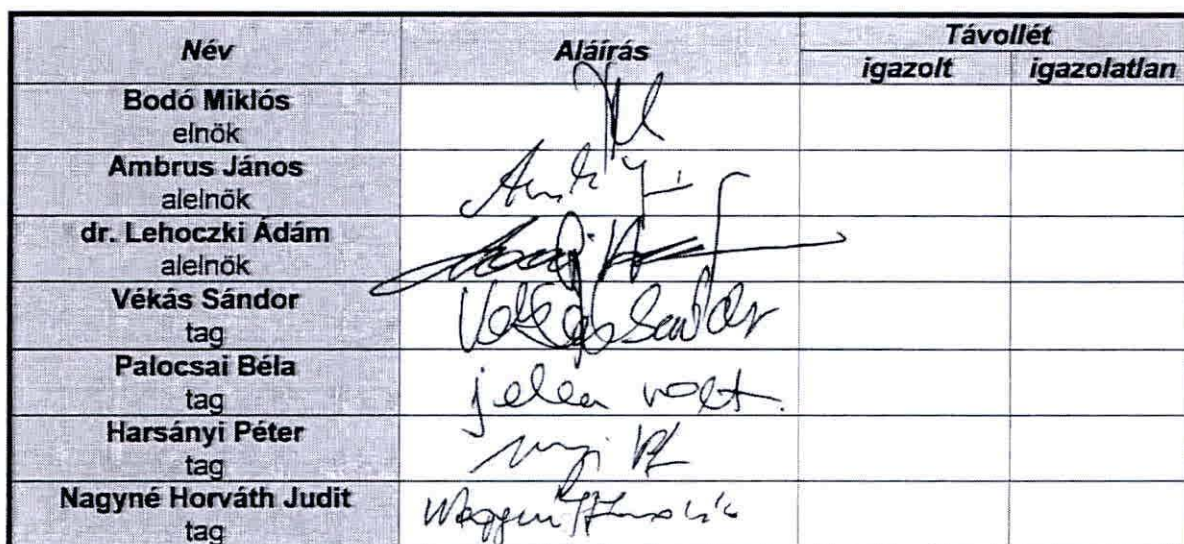 Név Aláírás Távollét
igazolt igazolatlan
Bodó Miklós
elnök
Ambrus János
alelnök
dr. Lehoczki Ádám
alelnök
Vékás Sándor Vékás Sándor
tag
Palocsai Béla jelen volt.
tag
Harsányi Péter
tag
Nagyné Horváth Judit
tag